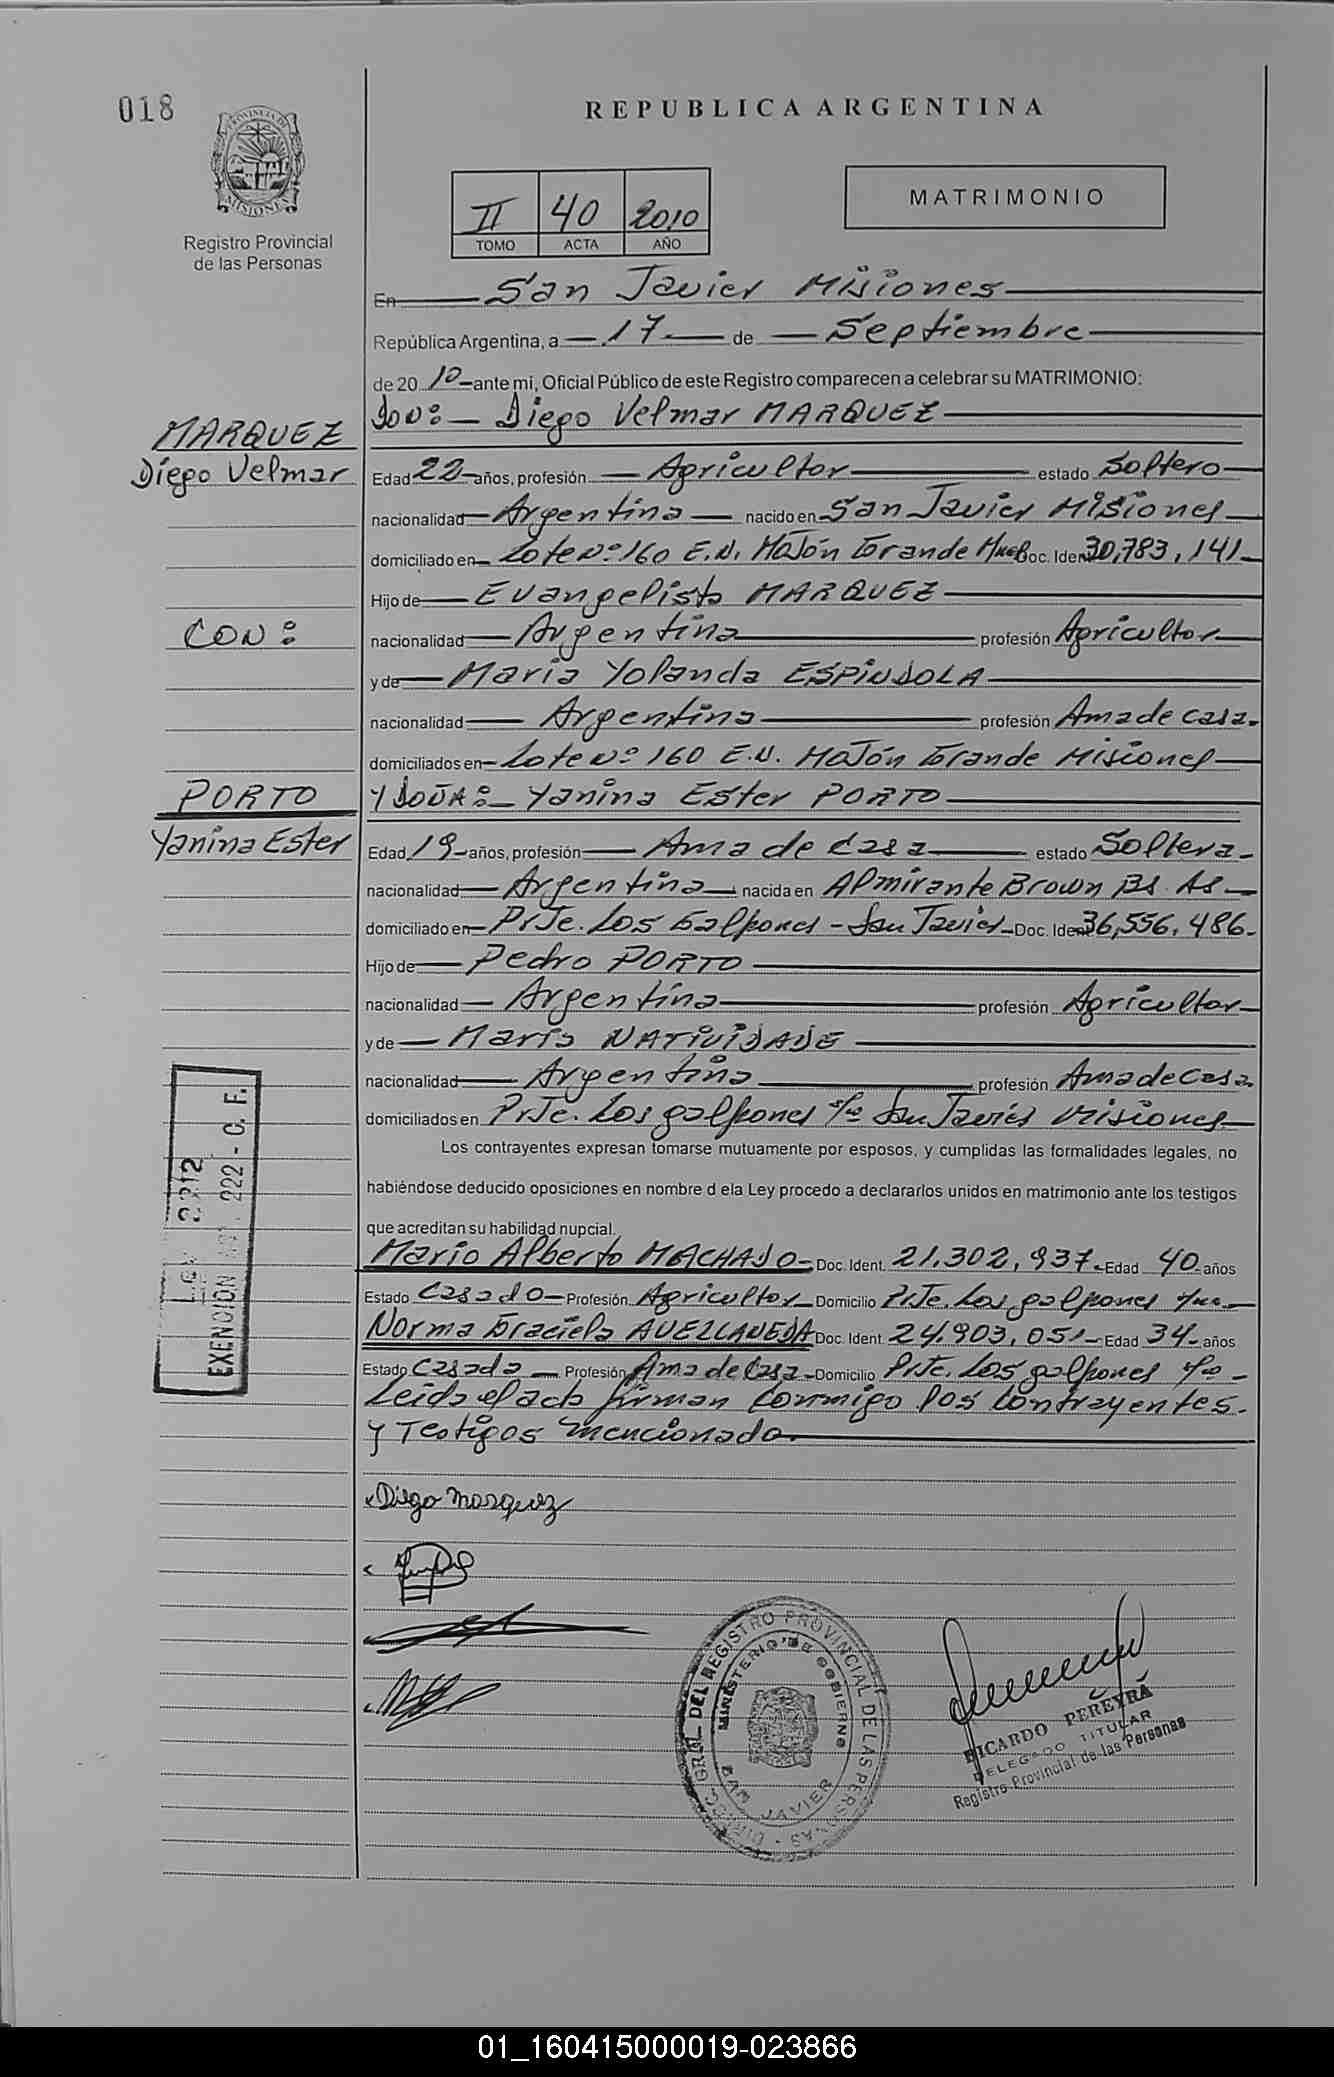 018
REPUBLICA ARGENTINA
PROVINCIA DE MISIONES
Registro Provincial
de las Personas
II 40 2010
TOMO ACTA AÑO
MATRIMONIO
En San Javier Misiones
República Argentina, a 17 de Septiembre
de 20 10 ante mi, Oficial Público de este Registro comparecen a celebrar su MATRIMONIO:
MARQUEZ
Diego Velmar
DON: Diego Velmar MARQUEZ
Edad 22 años, profesión Agricultor estado Soltero
nacionalidad Argentina nacido en San Javier Misiones
domiciliado en Lote Nº 160 E.N. Mojón Grande Doc. Iden 30,783,141
Hijo de Evangelista MARQUEZ
CON:
nacionalidad Argentina profesión Agricultor
y de Maria Yolanda ESPINDOLA
nacionalidad Argentina profesión Ama de casa.
domiciliados en Lote Nº 160 E.N. Mojón Grande Misiones
PORTO
Yanina Ester
Y DOÑA: Yanina Ester PORTO
Edad 19 años, profesión Ama de Casa estado Soltera
nacionalidad Argentina nacida en Almirante Brown Bs. As
domiciliado en Prje. Los Galpones - San Javier Doc. Iden 36,556,486.
Hijo de Pedro PORTO
nacionalidad Argentina profesión Agricultor
y de Maria NATIVIDADE
nacionalidad Argentina profesión Ama de Casa.
domiciliados en Prje. Los galpones San Javier Misiones
Los contrayentes expresan tomarse mutuamente por esposos, y cumplidas las formalidades legales, no
habiéndose deducido oposiciones en nombre d ela Ley procedo a declararlos unidos en matrimonio ante los testigos
que acreditan su habilidad nupcial.
Mario Alberto MACHADO Doc. Ident. 21.302,937 Edad 40 años
Estado Casado Profesión Agricultor Domicilio Prje. Los galpones
Norma Graciela AVELLANEDA Doc. Ident. 24.903,051 Edad 34 años
Estado Casada Profesión Ama de Casa Domicilio Prje. Los galpones
Leida el acta firman conmigo los contrayentes.
y Testigos mencionado.
LEY 2212
EXENCION 222 - C. F.
Diego Marquez
DIREC. GRAL. DEL REGISTRO PROVINCIAL DE LAS PERSONAS
MINISTERIO DE GOBIERNO
JAVIER
RICARDO PEREYRA
DELEGADO TITULAR
Registro Provincial de las Personas
01_160415000019-023866